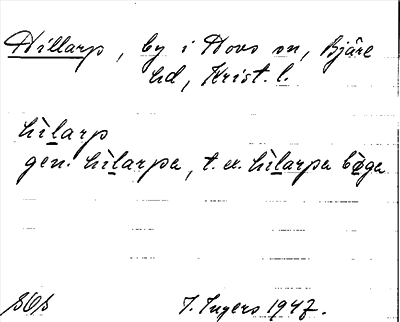 Hillarp, by i Hovs sn, Bjäre
hd, Krist. l.
hìlarp
gen. hìlarpa, t. ex. hìlarpa bøga
I. Ingers 1947.